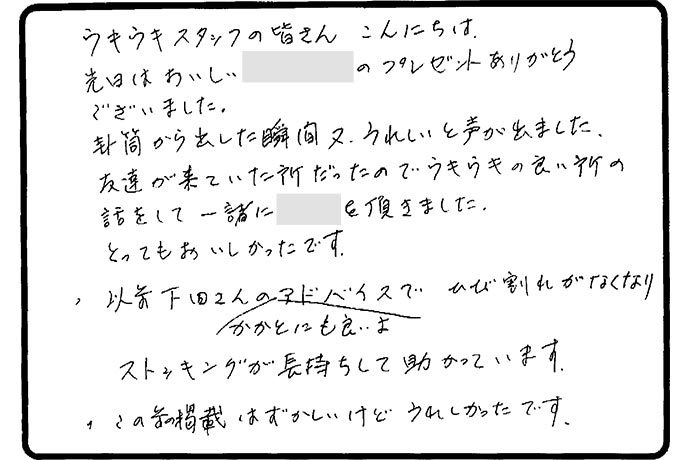 ウキウキスタッフの皆さん こんにちは.
先日はおいしい のプレゼントありがとう
ございました.
封筒から出した瞬間又.うれしいと声が出ました.
友達が来ていた所だったのでウキウキの良い所の
話をして一諸に を頂きました.
とってもおいしかったです.
、以前下田さんのアドバイスで ひび割れがなくなり
かかとにも良いよ
ストッキングが長持ちして助かっています.
、この前の掲載はずかしいけどうれしかったです.